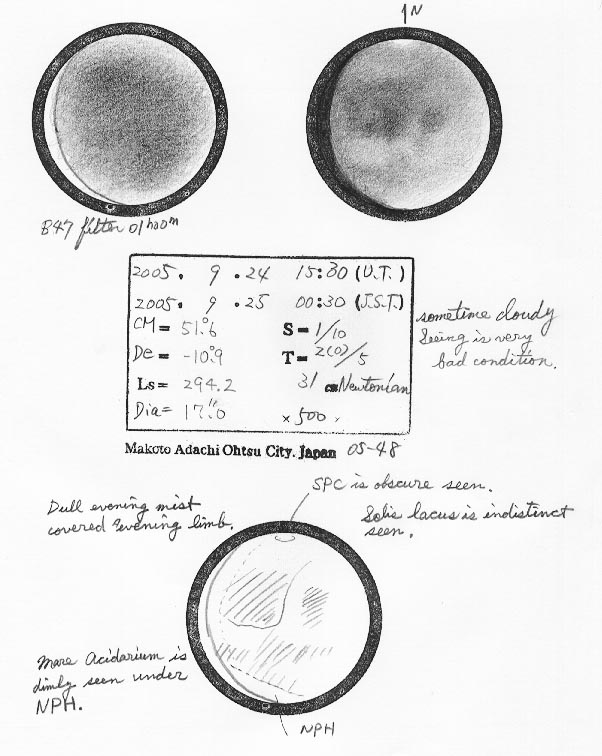 1N
B47 filter 01h00m
2005. 9 .24 15:30 (U.T.)
2005. 9 .25 00:30 (J.S.T.)
CM= 51°.6 S= 1/10
De= -10°.9 T= 2(0)/5
Ls= 294.2 31 cm Newtonian
Dia= 17".0 ×500.
sometime cloudy
Seeing is very
bad condition.
Makoto Adachi Ohtsu City. Japan 05-48
SPC is obscure seen.
Dull evening mist
covered evening limb.
Solis lacus is indistinct
seen.
Mare Acidarium is
dimly seen under
NPH.
NPH